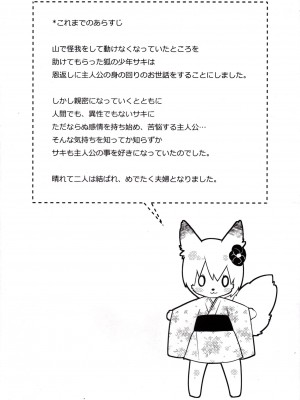 *これまでのあらすじ
山で怪我をして動けなくなっていたところを
助けてもらった狐の少年サキは
恩返しに主人公の身の回りのお世話をすることにしました。
しかし親密になっていくとともに
人間でも、異性でもないサキに
ただならぬ感情を持ち始め、苦悩する主人公…
そんな気持ちを知ってか知らずか
サキも主人公の事を好きになっていたのでした。
晴れて二人は結ばれ、めでたく夫婦となりました。